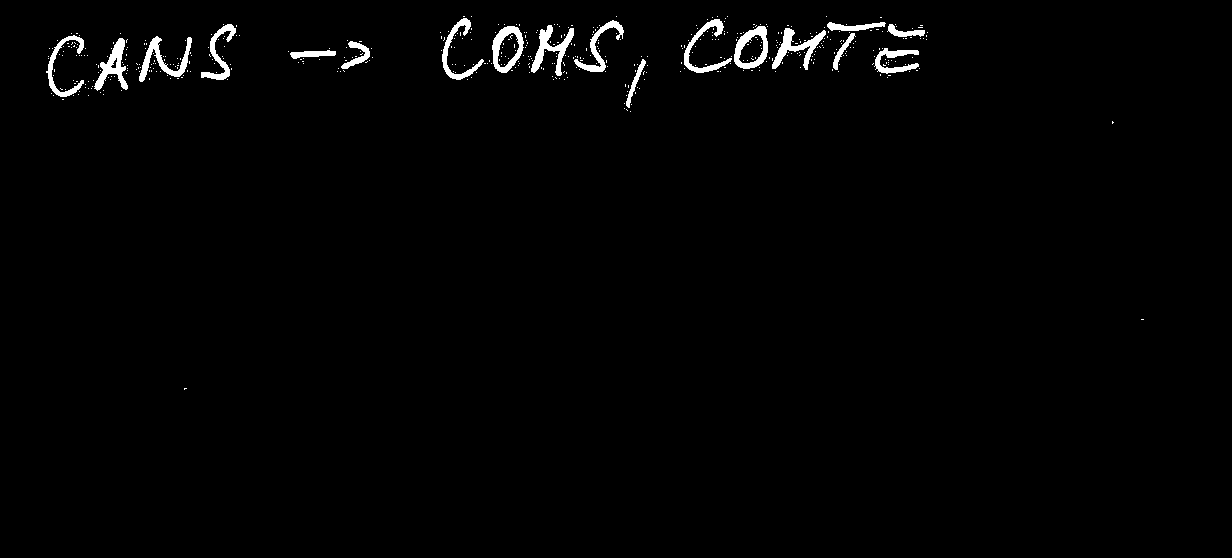 CANS -> COMS, COMTE